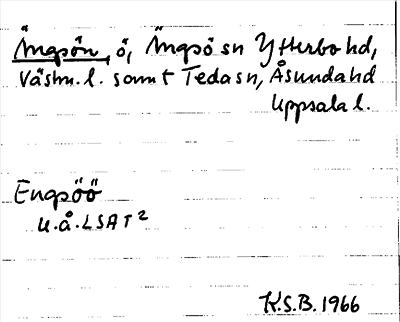 Ängsön, ö, Ängsö sn Ytterbo hd,
Västm. l. samt Teda sn, Åsunda hd
Uppsala l.
Engsöö
u.å. LSAT²
K.S.B. 1966